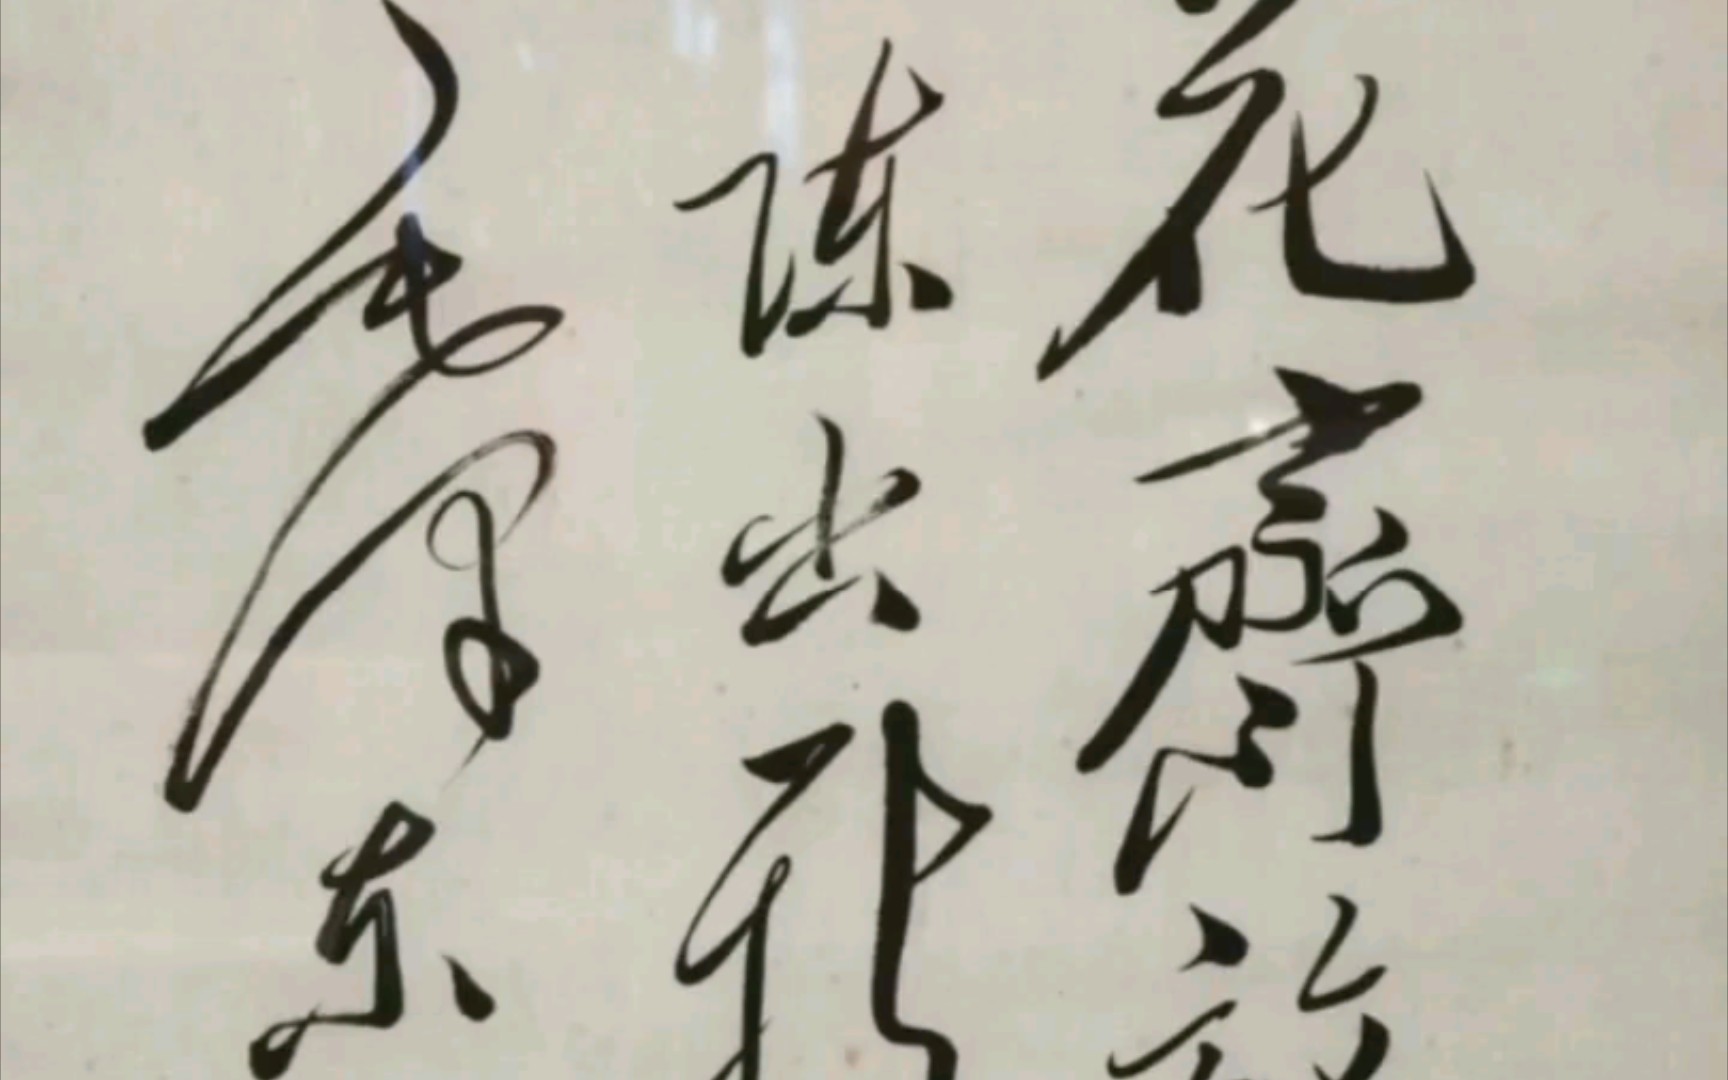 花齊放
陈出新
毛泽东